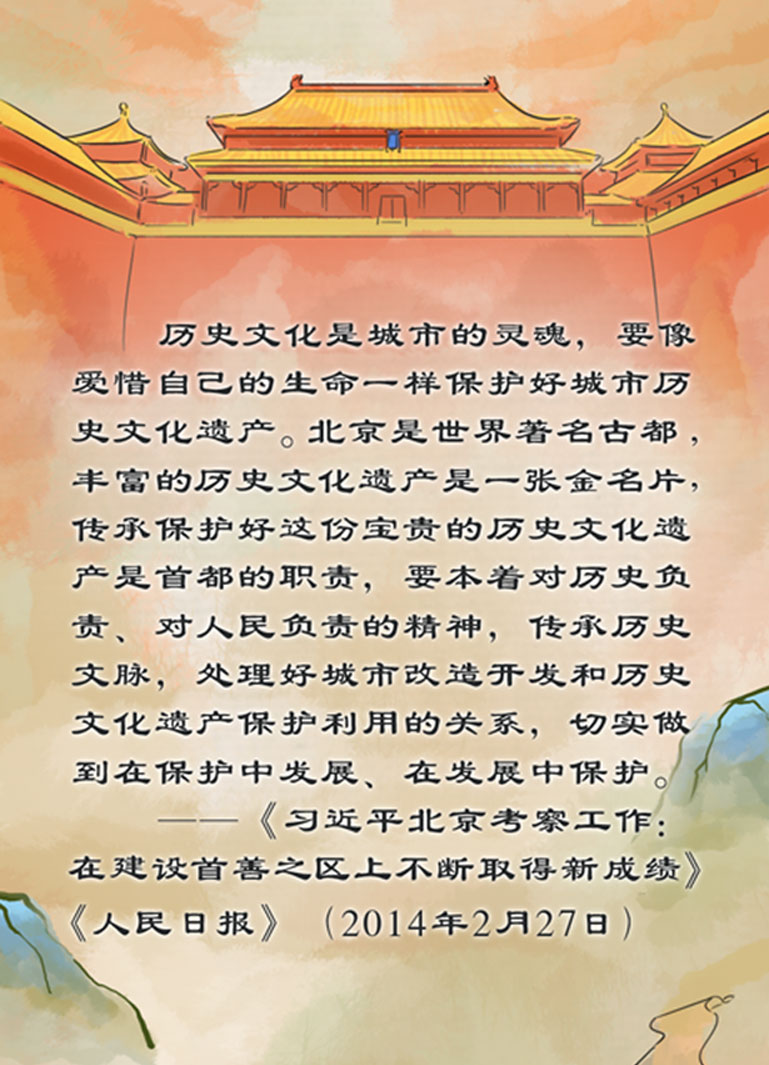 历史文化是城市的灵魂，要像
爱惜自己的生命一样保护好城市历
史文化遗产。北京是世界著名古都，
丰富的历史文化遗产是一张金名片，
传承保护好这份宝贵的历史文化遗
产是首都的职责，要本着对历史负
责、对人民负责的精神，传承历史
文脉，处理好城市改造开发和历史
文化遗产保护利用的关系，切实做
到在保护中发展、在发展中保护。
——《习近平北京考察工作：
在建设首善之区上不断取得新成绩》
《人民日报》（2014年2月27日）